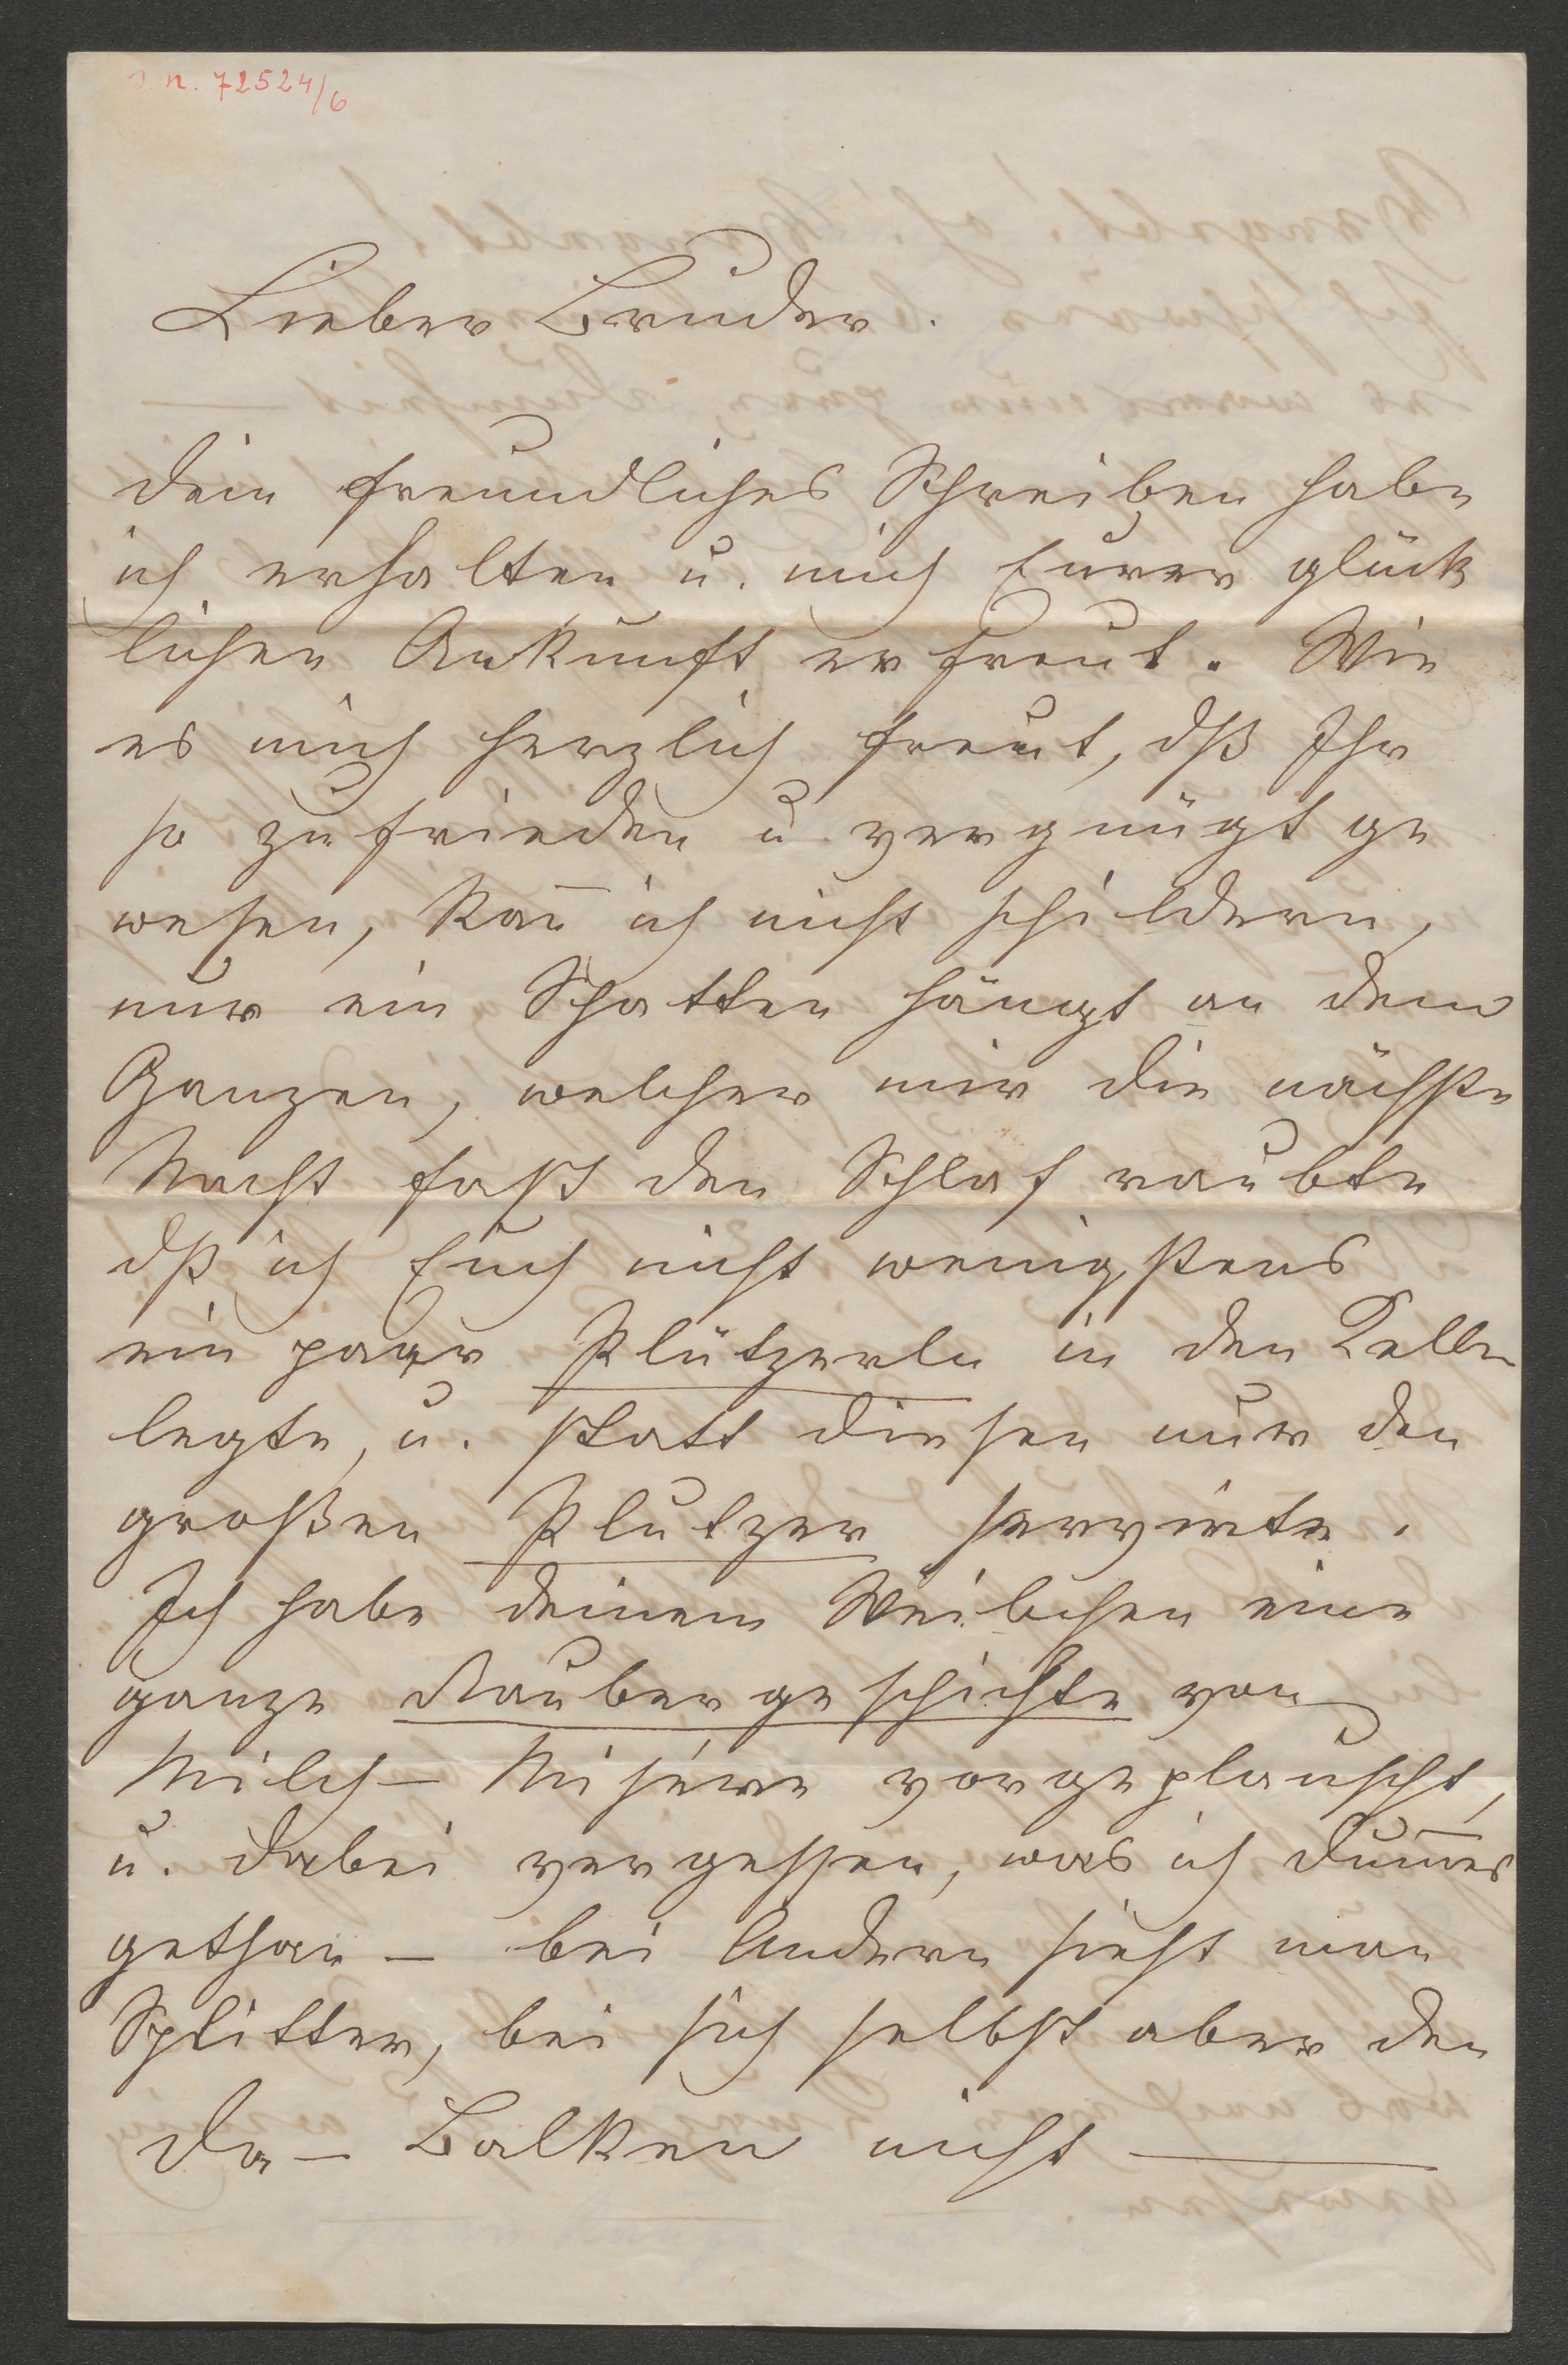 J. n. 72524/6
Lieber Bruder.
dein freundliches Schreiben habe
ich erhalten u. mich Eurer glück
lichen Ankunft erfreut. Wie
es mich herzlich freut, dß Ihr
so zufrieden u vergnügt ge
wesen, kan̄ ich nicht schildern,
nur ein Schatten hängt an dem
Ganzen, welcher mir die nächste
Nacht fast den Schlaf raubte
dß ich Euch nicht wenigstens
ein paar Plützerln in den Keller
legte, u. statt diesen nur den
großen Plutzer servirte.
Ich habe deinem Weibchen eine
ganze Raubergeschichte von
Milch-Misère vorgeplauscht,
u. dabei vergessen, was ich dum̄es
gethan – bei Andern sieht man
Splitter, bei sich selbst aber den
da – Balken nicht —